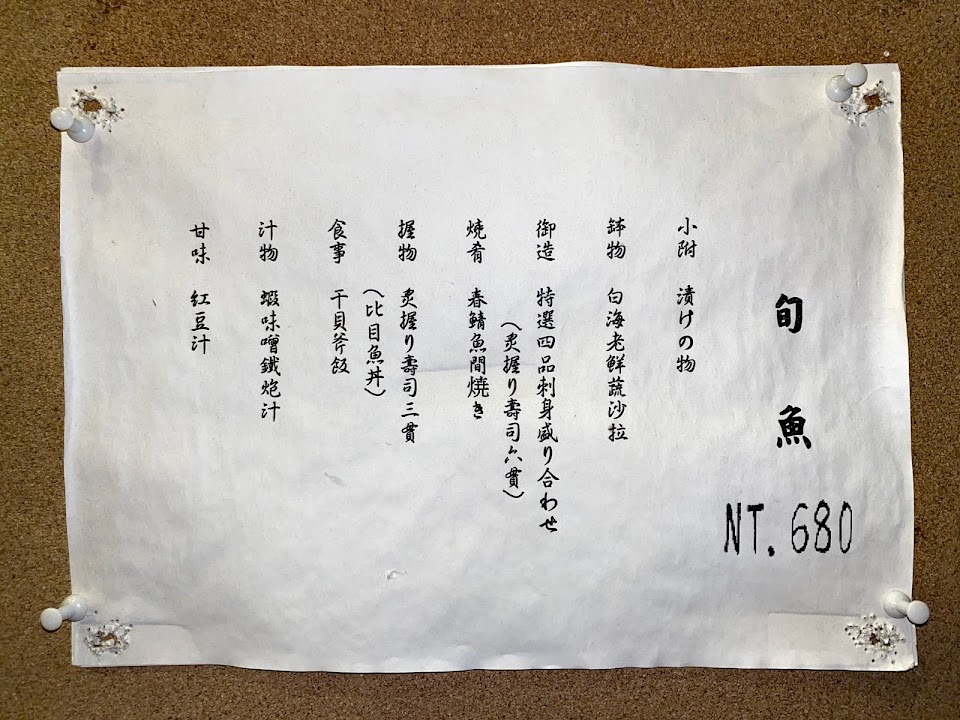 旬魚
NT. 680
小附 漬けの物
鉢物 白海老鮮蔬沙拉
御造 特選四品刺身盛り合わせ
(炙握り壽司六貫)
燒肴 春鯖魚間焼き
握物 炙握り壽司三貫
(比目魚丼)
食事 干貝斧飯
汁物 蝦味噌鐵炮汁
甘味 紅豆汁